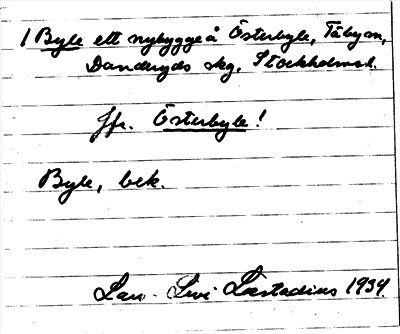 1 Byle ett nybygge å Österbyle, Täby sn,
Danderyds skg, Stockholms l.
Jfr. Österbyle!
Byle, bek.
Lars-Levi Læstadius 1934.